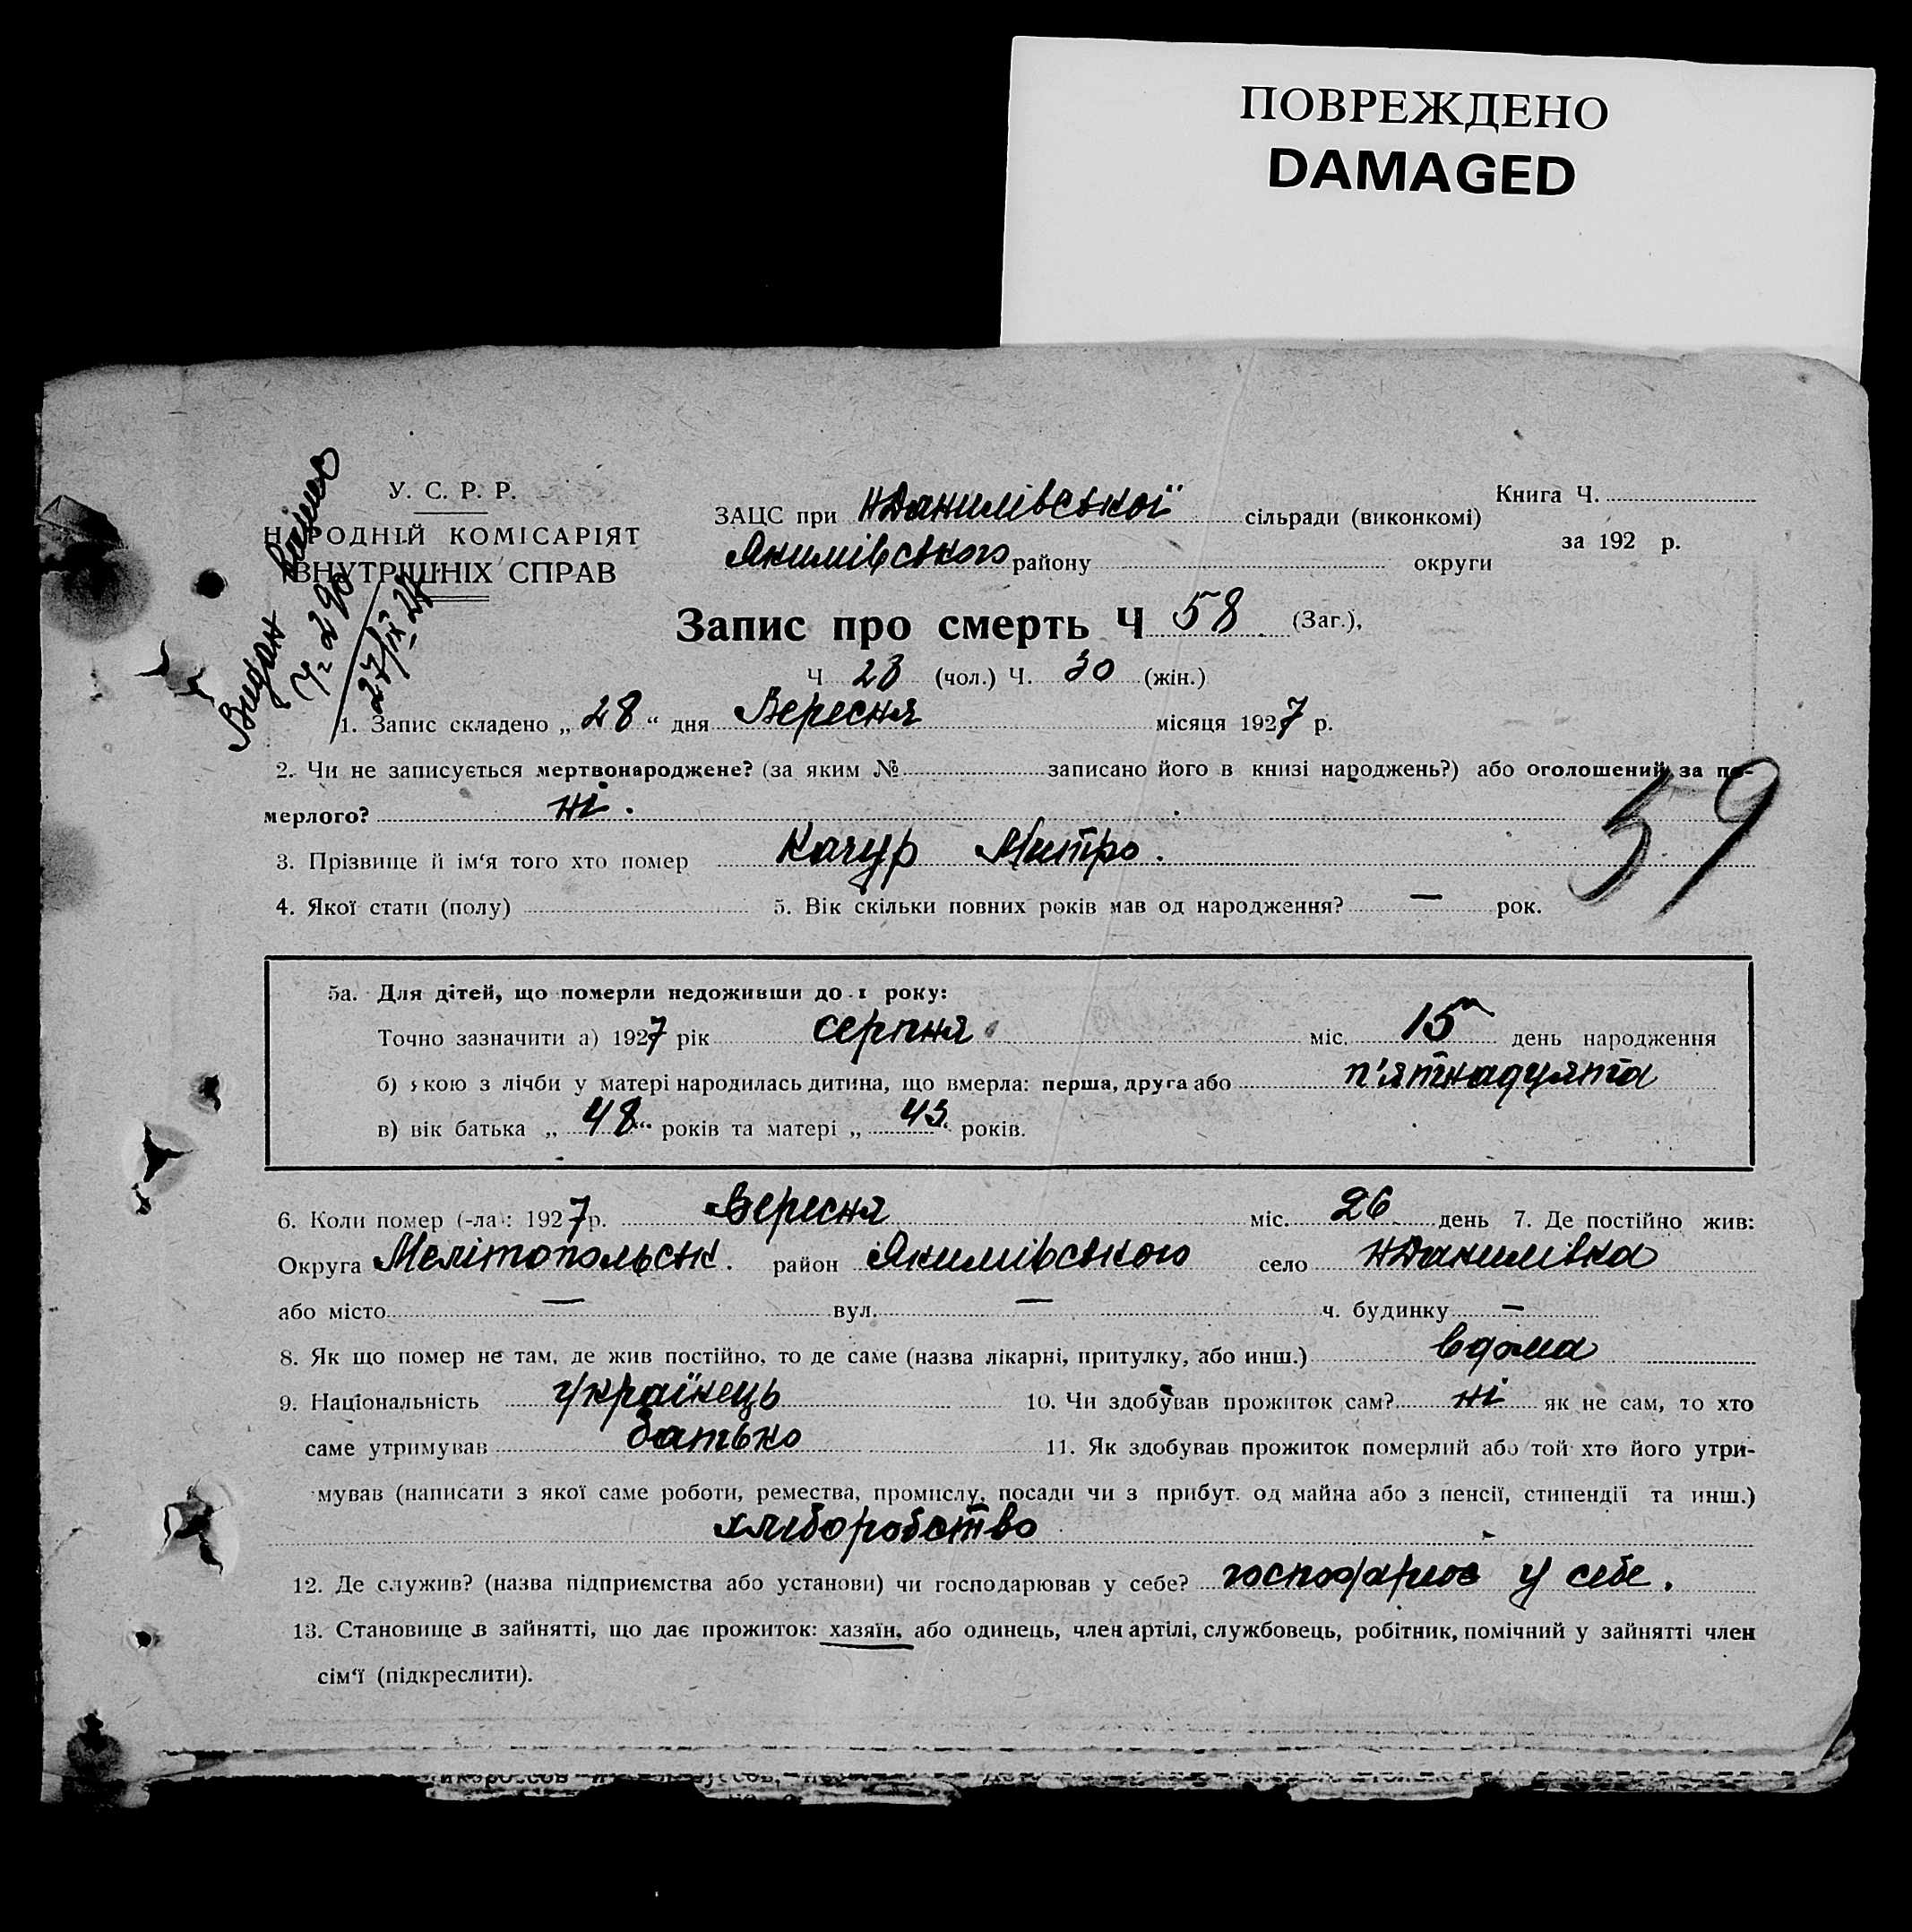 ПОВРЕЖДЕНО
DAMAGED
У. С. Р. Р.
НАРОДНІЙ КОМІСАРІЯТ
ВНУТРІШНІХ СПРАВ
Видан
Ч 290
27/ІХ 27
ЗАЦС при НДанилівської сільради (виконкомі)
Якимівського району округи
Книга Ч.
за 192 р.
Запис про смерть Ч 58 (Заг.),
Ч 28 (чол.) Ч. 30 (жін.)
1. Запис складено „ 28 “ дня Вересня місяця 1927 р.
2. Чи не записується мертвонароджене? (за яким № записано його в книзі народжень?) або оголошений за по-
мерлого? ні .
59
3. Прізвище й ім‘я того хто помер Качур Митро .
4. Якої стати (полу) 5. Вік скільки повних років мав од народження? — рок.
5а. Для дітей, що померли недоживши до 1 року:
Точно зазначити а) 1927 рік серпня міс. 15 день народження
б) якою з лічби у матері народилась дитина, що вмерла: перша, друга або п'ятнадцята
в) вік батька „ 48 “ років та матері „ 43 “ років.
6. Коли помер (-ла): 1927 р. Вересня міс. 26 день 7. Де постійно жив:
Округа Мелітопольськ. район Якимівського село НДанилівка
або місто — вул. — ч. будинку —
8. Як що помер не там, де жив постійно, то де саме (назва лікарні, притулку, або инш.) вдома
9. Національність Українець 10. Чи здобував прожиток сам? ні як не сам, то хто
саме утримував батько 11. Як здобував прожиток померлий або той хто його утри-
мував (написати з якої саме роботи, ремества, промислу, посади чи з прибут. од майна або з пенсії, стипендії та инш.)
хліборобство
12. Де служив? (назва підприємства або установи) чи господарював у себе? господарює у себе.
13. Становище в зайнятті, що дає прожиток: хазяїн, або одинець, член артілі, службовець, робітник, помічний у зайнятті член
сім‘ї (підкреслити).